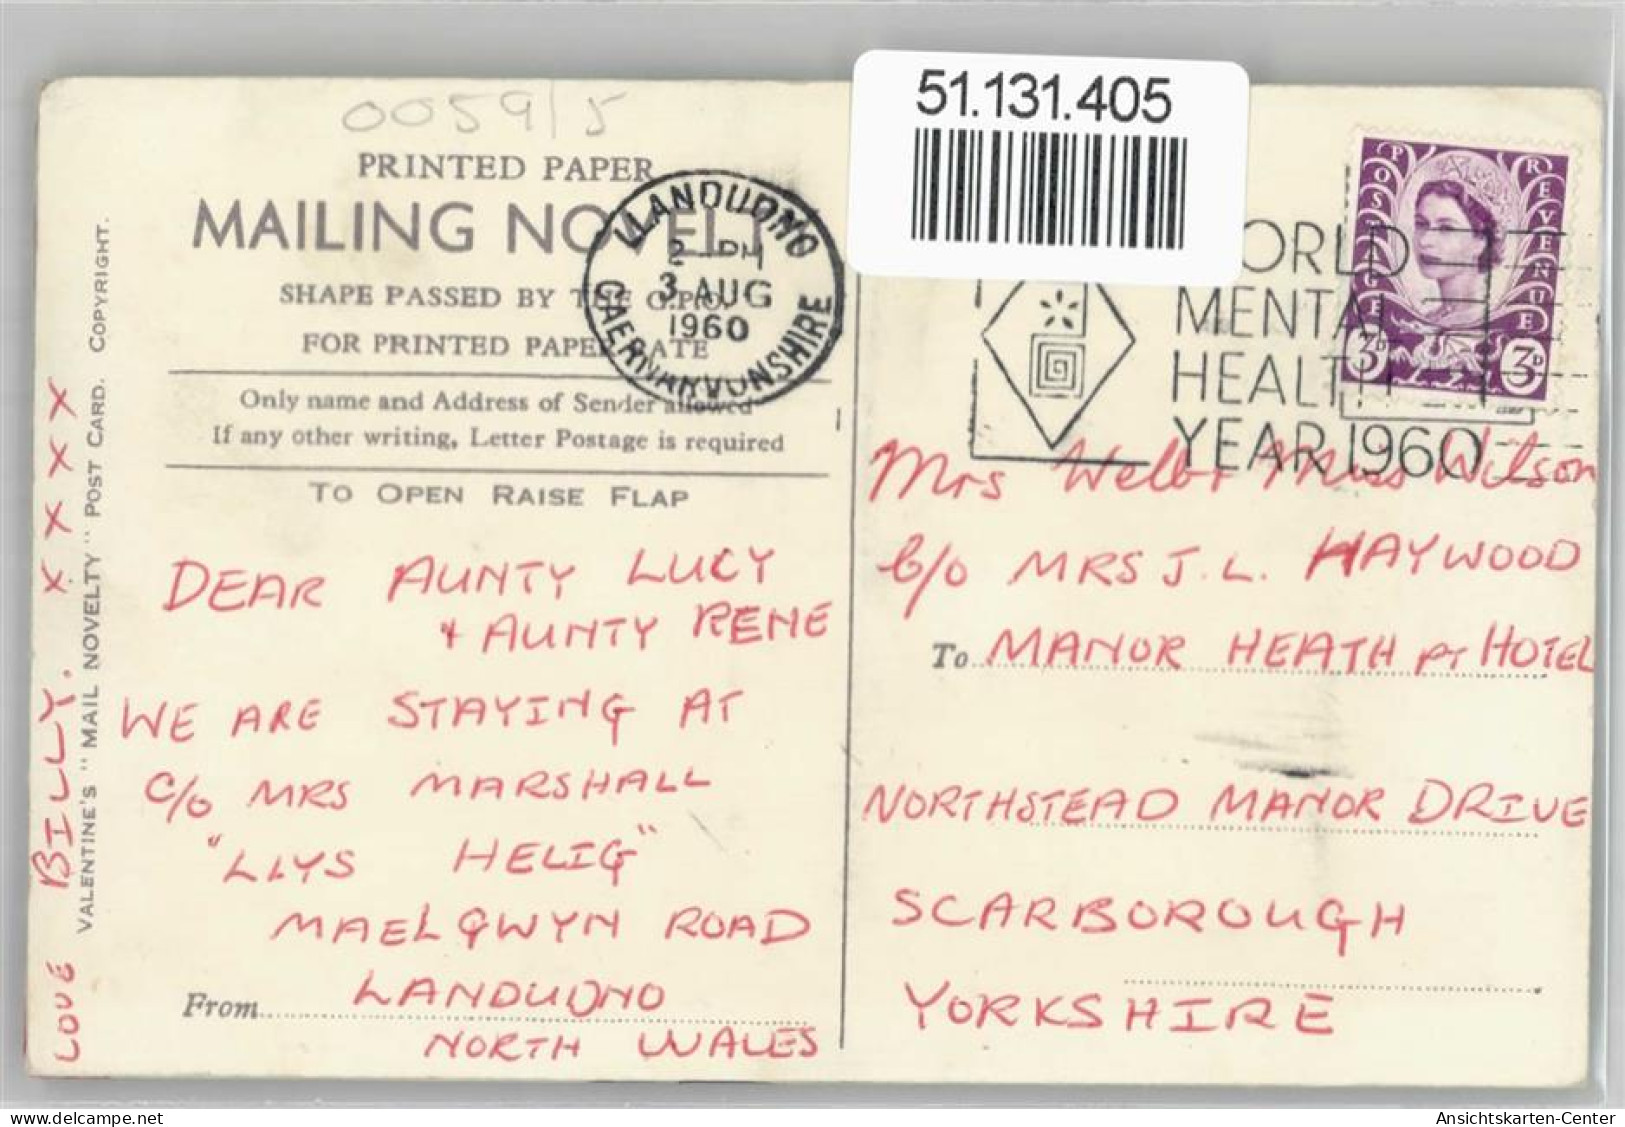 0059/5
51.131.405
PRINTED PAPER
MAILING NOVELTY
SHAPE PASSED BY THE G.P.O.
FOR PRINTED PAPER RATE
Only name and Address of Sender allowed
If any other writing, Letter Postage is required
TO OPEN RAISE FLAP
LLANDUDNO
2 - PM
3 AUG
1960
CAERNARVONSHIRE
WORLD
MENTAL
HEALTH
YEAR 1960
POSTAGE REVENUE
3D 3D
DEAR AUNTY LUCY
+ AUNTY RENE
WE ARE STAYING AT
C/O MRS MARSHALL
"LLYS HELIG"
MAELGWYN ROAD
From LANDUDNO
NORTH WALES
LOVE BILLY. X X X X X
VALENTINE'S "MAIL NOVELTY" POST CARD. COPYRIGHT.
Mrs Miss Wilson
C/O MRS J.L. HAYWOOD
To MANOR HEATH PT HOTEL
NORTHSTEAD MANOR DRIVE
SCARBOROUGH
YORKSHIRE
Ansichtskarten-Center